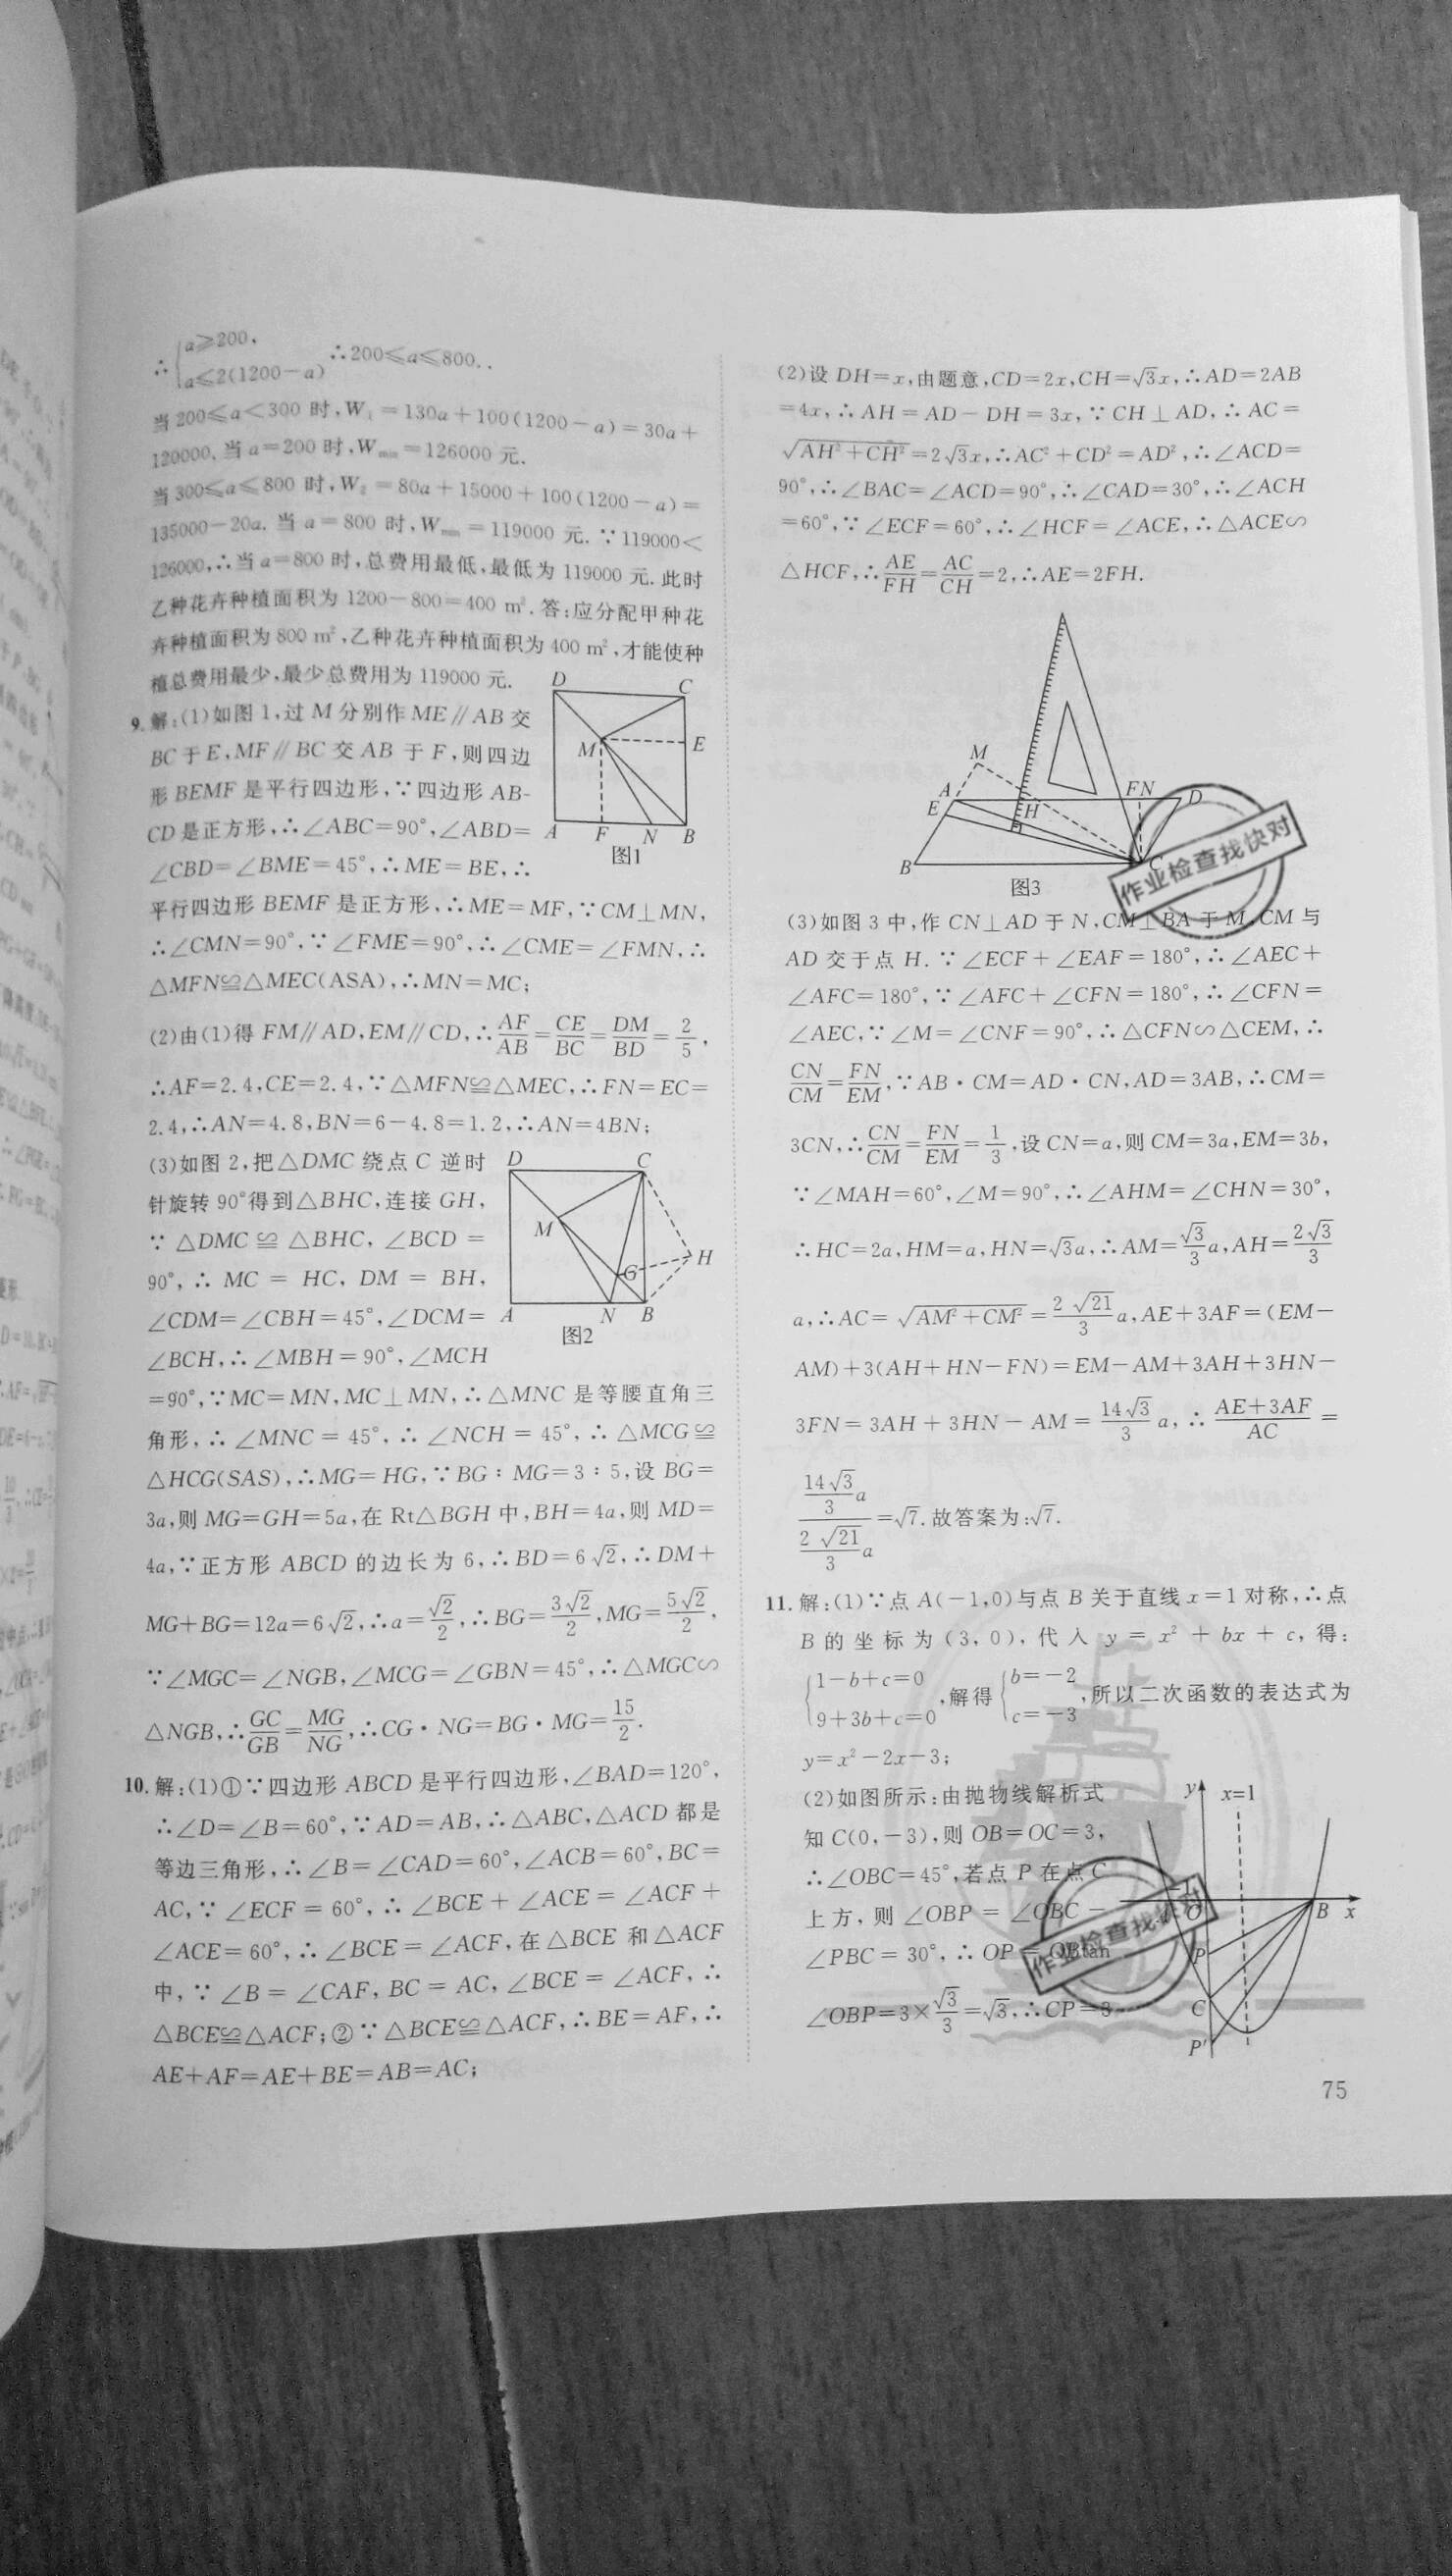 ∴{a≥200, a≤2(1200-a) ∴200≤a≤800.
当200≤a<300时,W₁=130a+100(1200-a)=30a+
120000.当a=200时,Wmin=126000元.
当300≤a≤800时,W₂=80a+15000+100(1200-a)=
135000-20a.当a=800时,Wmin=119000元.∵119000<
126000,∴当a=800时,总费用最低,最低为119000元.此时
乙种花卉种植面积为1200-800=400 m².答:应分配甲种花
卉种植面积为800 m²,乙种花卉种植面积为400 m²,才能使种
植总费用最少,最少总费用为119000元.
9.解:(1)如图1,过M分别作ME∥AB交
BC于E,MF∥BC交AB于F,则四边
形BEMF是平行四边形,∵四边形AB-
CD是正方形,∴∠ABC=90°,∠ABD=
∠CBD=∠BME=45°,∴ME=BE,∴
平行四边形BEMF是正方形,∴ME=MF,∵CM⊥MN,
∴∠CMN=90°,∵∠FME=90°,∴∠CME=∠FMN,∴
△MFN≌△MEC(ASA),∴MN=MC;
D C M E A F N B
图1
(2)由(1)得FM∥AD,EM∥CD,∴AF/AB=CE/BC=DM/BD=2/5,
∴AF=2.4,CE=2.4,∵△MFN≌△MEC,∴FN=EC=
2.4,∴AN=4.8,BN=6-4.8=1.2,∴AN=4BN;
(3)如图2,把△DMC绕点C逆时
针旋转90°得到△BHC,连接GH,
∵△DMC≌△BHC,∠BCD=
90°,∴MC=HC,DM=BH,
∠CDM=∠CBH=45°,∠DCM=
∠BCH,∴∠MBH=90°,∠MCH
D C M H G A N B
图2
=90°,∵MC=MN,MC⊥MN,∴△MNC是等腰直角三
角形,∴∠MNC=45°,∴∠NCH=45°,∴△MCG≌
△HCG(SAS),∴MG=HG,∵BG:MG=3:5,设BG=
3a,则MG=GH=5a,在Rt△BGH中,BH=4a,则MD=
4a,∵正方形ABCD的边长为6,∴BD=6√2,∴DM+
MG+BG=12a=6√2,∴a=√2/2,∴BG=3√2/2,MG=5√2/2,
∵∠MGC=∠NGB,∠MCG=∠GBN=45°,∴△MGC∽
△NGB,∴GC/GB=MG/NG,∴CG·NG=BG·MG=15/2.
10.解:(1)①∵四边形ABCD是平行四边形,∠BAD=120°,
∴∠D=∠B=60°,∵AD=AB,∴△ABC,△ACD都是
等边三角形,∴∠B=∠CAD=60°,∠ACB=60°,BC=
AC,∵∠ECF=60°,∴∠BCE+∠ACE=∠ACF+
∠ACE=60°,∴∠BCE=∠ACF,在△BCE和△ACF
中,∵∠B=∠CAF,BC=AC,∠BCE=∠ACF,∴
△BCE≌△ACF;②∵△BCE≌△ACF,∴BE=AF,∴
AE+AF=AE+BE=AB=AC;
(2)设DH=x,由题意,CD=2x,CH=√3x,∴AD=2AB
=4x,∴AH=AD-DH=3x,∵CH⊥AD,∴AC=
√(AH²+CH²)=2√3x,∴AC²+CD²=AD²,∴∠ACD=
90°,∴∠BAC=∠ACD=90°,∴∠CAD=30°,∴∠ACH
=60°,∵∠ECF=60°,∴∠HCF=∠ACE,∴△ACE∽
△HCF,∴AE/FH=AC/CH=2,∴AE=2FH.
M A E H F N D B C
图3
作业检查找快对
(3)如图3中,作CN⊥AD于N,CM⊥BA于M,CM与
AD交于点H.∵∠ECF+∠EAF=180°,∴∠AEC+
∠AFC=180°,∵∠AFC+∠CFN=180°,∴∠CFN=
∠AEC,∵∠M=∠CNF=90°,∴△CFN∽△CEM,∴
CN/CM=FN/EM,∵AB·CM=AD·CN,AD=3AB,∴CM=
3CN,∴CN/CM=FN/EM=1/3,设CN=a,则CM=3a,EM=3b,
∵∠MAH=60°,∠M=90°,∴∠AHM=∠CHN=30°,
∴HC=2a,HM=a,HN=√3a,∴AM=√3/3a,AH=2√3/3
a,∴AC=√(AM²+CM²)=2√21/3a,AE+3AF=(EM-
AM)+3(AH+HN-FN)=EM-AM+3AH+3HN-
3FN=3AH+3HN-AM=14√3/3a,∴(AE+3AF)/AC=
(14√3/3a)/(2√21/3a)=√7.故答案为:√7.
11.解:(1)∵点A(-1,0)与点B关于直线x=1对称,∴点
B的坐标为(3,0),代入y=x²+bx+c,得:
{1-b+c=0, 9+3b+c=0,解得{b=-2, c=-3,所以二次函数的表达式为
y=x²-2x-3;
(2)如图所示:由抛物线解析式
知C(0,-3),则OB=OC=3,
∴∠OBC=45°,若点P在点C
上方,则∠OBP=∠OBC-
∠PBC=30°,∴OP=OBtan
∠OBP=3×√3/3=√3,∴CP=3-
y x=1 O B x P C P′
作业检查找快对
75